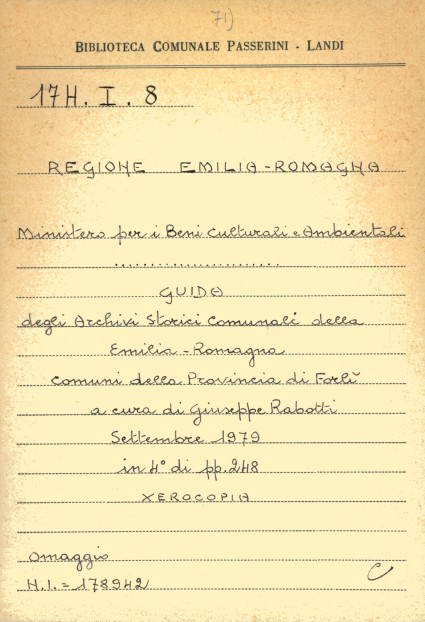 71)
BIBLIOTECA COMUNALE PASSERINI - LANDI
17H. I. 8
REGIONE EMILIA-ROMAGNA
Ministero per i Beni Culturali e Ambientali
..........................
GUIDA
degli Archivi Storici Comunali della
Emilia-Romagna
comuni della Provincia di Forlì
a cura di Giuseppe Rabotti
Settembre 1979
in 4° di pp. 248
XEROCOPIA
Omaggio
N.I. = 178942
C